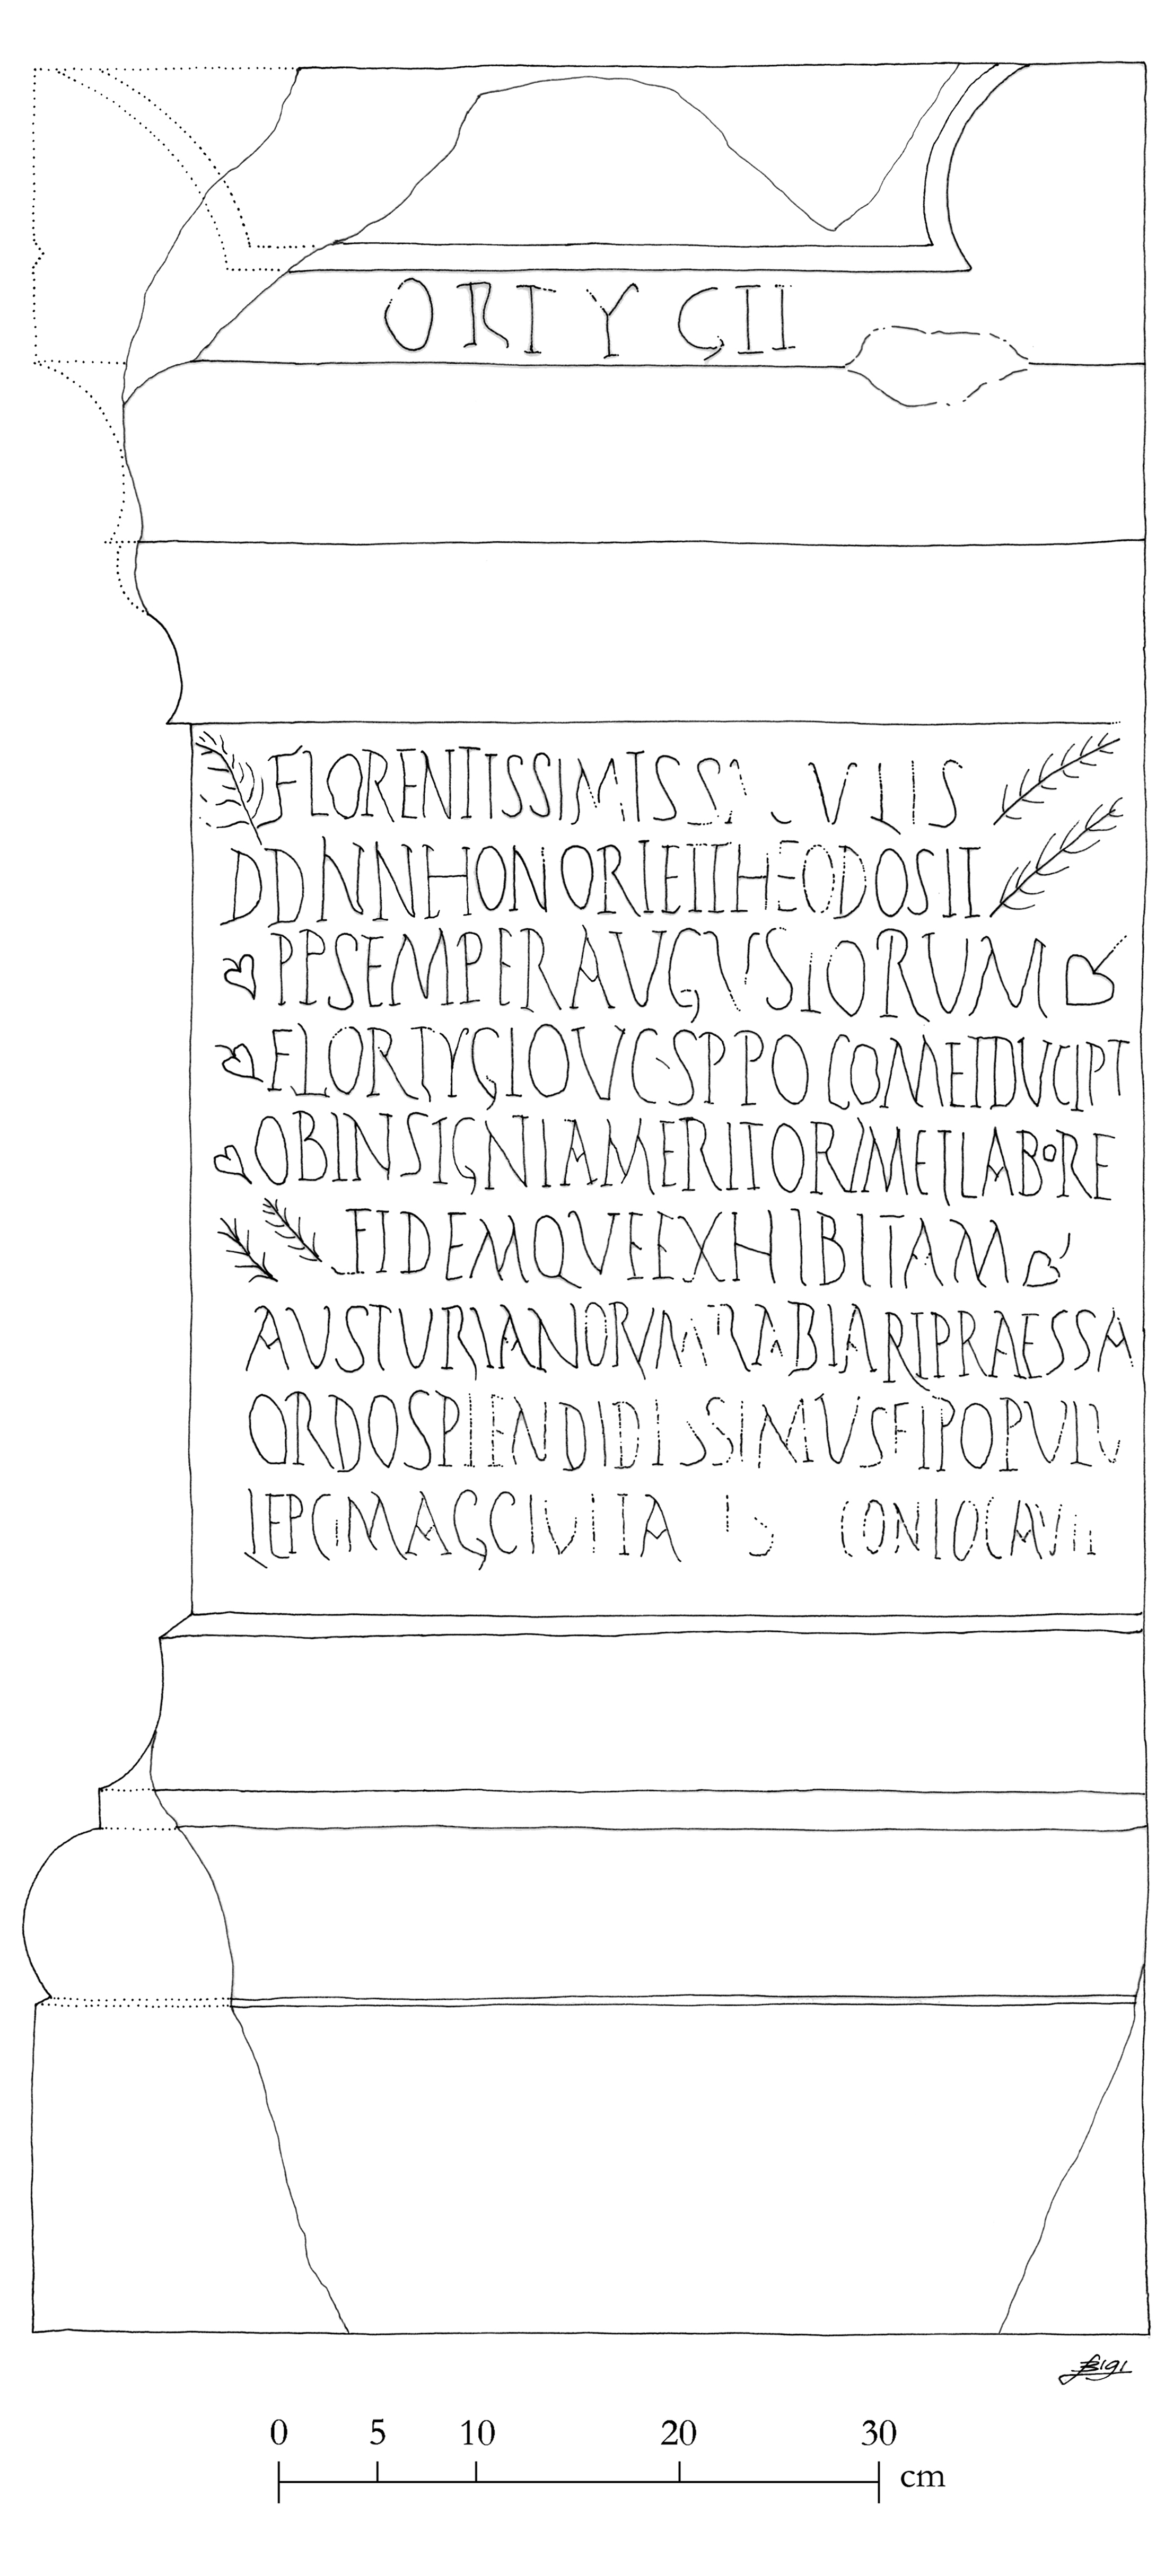 ORTYGII
FLORENTISSIMIS S VLIS
DDNNHONORIETTHEODOSII
PPSEMPERAVGVSTORUM
FLORTYGIOVCSPPOCOMETDUCIPT
OBINSIGNIAMERITORVMETLABORE
FIDEMQVEEXHIBITAM
AUSTURIANORVMRABIARIPRAESSA
ORDOSPLENDIDISSIMUSETPOPULU
LEPCIMAGCIVITA IS CONLOCAVIT
0 5 10 20 30
cm